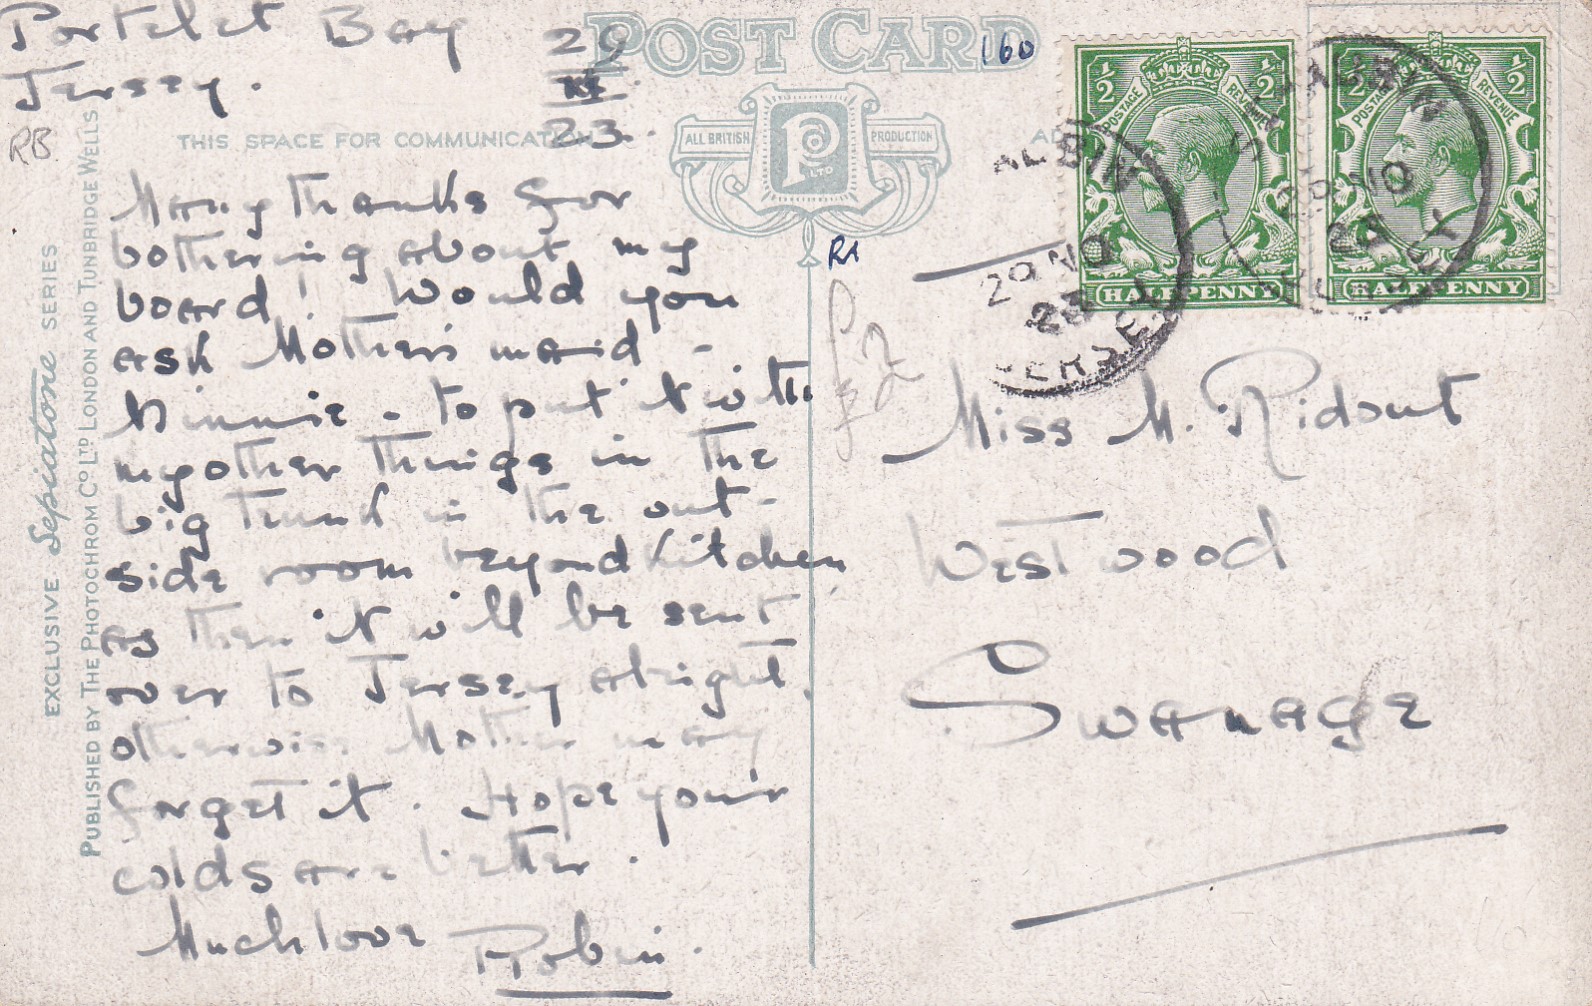 Portelet Bay
Jersey.
29
XI
23.
RB
POST CARD
160
THIS SPACE FOR COMMUNICATION
ALL BRITISH
PRODUCTION
P
Co
LTD
EXCLUSIVE Sepiatone SERIES
PUBLISHED BY THE PHOTOCHROM CO LTD LONDON AND TUNBRIDGE WELLS
Many thanks for
bothering about my
board! Would you
ask Mother's maid -
Minnie - to put it with
my other things in the
big trunk in the out-
side room beyond kitchen
as then it will be sent
over to Jersey alright,
otherwise Mother may
forget it. Hope your
colds are better.
Much love Robin.
RA
£2
½ ½
POSTAGE REVENUE
HALFPENNY
½ ½
POSTAGE REVENUE
HALFPENNY
ALBIN
29 NO
23
JERSEY
ST AUBIN
29 NO
23
Miss M. Ridout
Westwood
Swanage